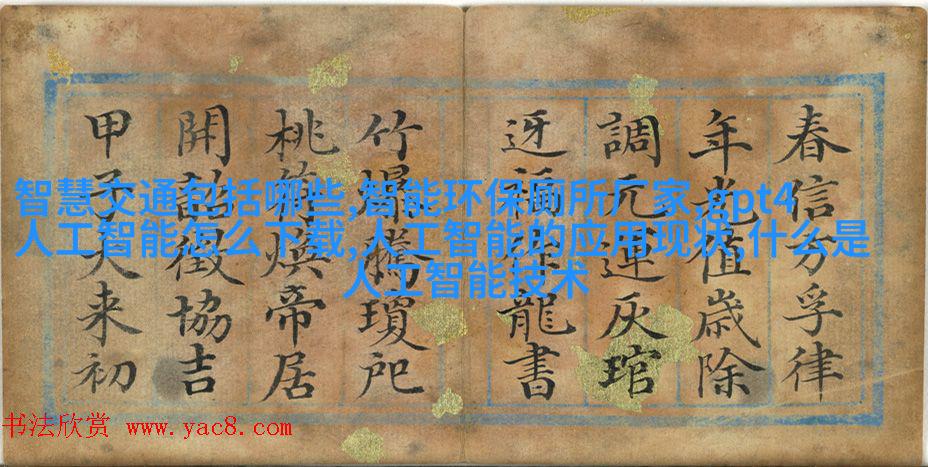 春信方孚律
年光值歲除
調元運灰琯
迓福龍書
竹爆騰瓊戺
桃符煥帝居
開韶徵協吉
甲子天来初
智慧交通包括哪些,智能环保厕所厂家,gpt4
人工智能怎么下载,人工智能的应用现状,什么是
人工智能技术
书法欣赏 www.yac8.com